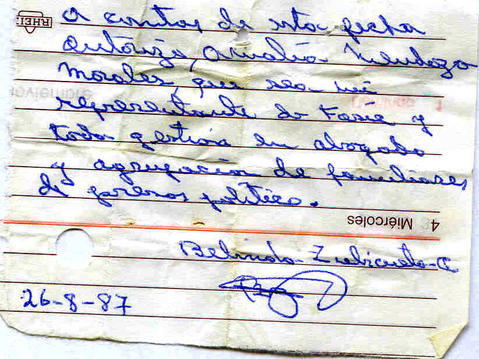 A contar de esta fecha
autorizo, Amalia Mendoza
Morales, que sea mi
representante de Fasic y
todas gestion en abogado
y agrupación de familiares
de presos politico.
4 Miércoles
Belinda Zubicueta C
26-8-87
noviembre
RHEIN